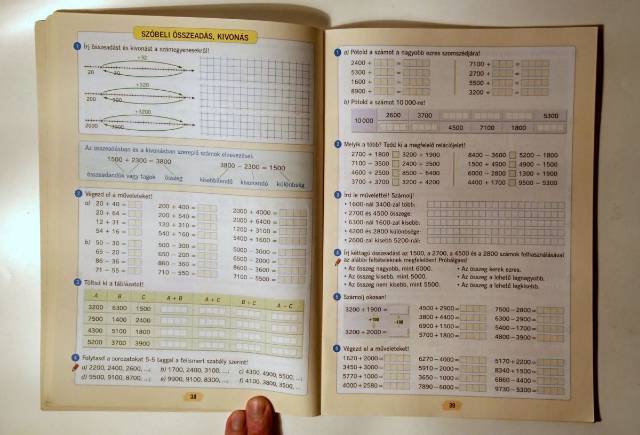 SZÓBELI ÖSSZEADÁS, KIVONÁS
1 Írj összeadást és kivonást a számegyenesekről!
+32
20
+320
200
+3200
2000
Az összeadásban és a kivonásban szereplő számok elnevezései:
1500 + 2300 = 3800
3800 − 2300 = 1500
összeadandók vagy tagok
összeg
kisebbítendő
kivonandó
különbség
2 Végezd el a műveleteket!
a) 20 + 40 =
200 + 400 =
2000 + 4000 =
20 + 64 =
200 + 640 =
2000 + 6400 =
12 + 31 =
120 + 310 =
1200 + 3100 =
54 + 16 =
540 + 160 =
5400 + 1600 =
b) 50 − 30 =
500 − 300 =
5000 − 3000 =
65 − 20 =
650 − 200 =
6500 − 2000 =
86 − 36 =
860 − 360 =
8600 − 3600 =
71 − 55 =
710 − 550 =
7100 − 5500 =
3 Töltsd ki a táblázatot!
A B C A + B A + C B + C A − C
3200 6300 1500
7500 1400 2400
4300 5100 1800
5200 3700 3900
4 Folytasd a sorozatokat 5-5 taggal a felismert szabály szerint!
a) 2200, 2400, 2600, ...;
b) 1700, 2400, 3100, ...;
c) 4300, 4900, 5500, ...;
d) 9500, 9100, 8700, ...;
e) 9900, 9100, 8300, ...;
f) 4100, 3800, 3500, ...
38
1 a) Pótold a számot a nagyobb ezres szomszédjára!
2400 + =
7100 + =
5300 + =
2700 + =
1600 + =
5500 + =
8900 + =
3200 + =
b) Pótold a számot 10 000-re!
10 000
2600 3700 5300
4500 7100 1800
2 Melyik a több? Tedd ki a megfelelő relációjelet!
2700 + 1800 3200 + 1900
8400 − 3600 5200 − 1800
7100 − 3500 2400 + 3500
1500 + 4900 4900 − 1500
4600 + 2500 8500 − 6400
6000 − 2800 1300 + 1900
3700 + 3700 3200 + 4200
4400 + 1700 9500 − 5300
3 Írd le művelettel! Számolj!
• 1600-nál 3400-zal több:
• 2700 és 4500 összege:
• 6300-nál 1600-zal kisebb:
• 4200 és 2800 különbsége:
• 2600-zal kisebb 5200-nál:
4 Írj kéttagú összeadást az 1500, a 2700, a 4500 és a 2800 számok felhasználásával
az alábbi feltételeknek megfelelően! Próbálgass!
• Az összeg nagyobb, mint 6000.
• Az összeg kerek ezres.
• Az összeg kisebb, mint 5000.
• Az összeg a lehető legnagyobb.
• Az összeg nem kisebb, mint 5500.
• Az összeg a lehető legkisebb.
5 Számolj okosan!
3200 + 1900 =
4500 + 2900 =
7500 − 2800 =
+100
−100
3800 + 4400 =
6300 − 2900 =
6900 + 1500 =
5400 − 1700 =
3200 + 2000 =
5700 + 1800 =
4800 − 3900 =
6 Végezd el a műveleteket!
1620 + 2000 =
6270 − 4000 =
5170 + 2200 =
3450 + 3000 =
5910 − 2000 =
8340 + 1500 =
5770 + 1000 =
3650 − 1000 =
6860 − 4400 =
4000 + 2580 =
7890 − 6000 =
9730 − 5300 =
39